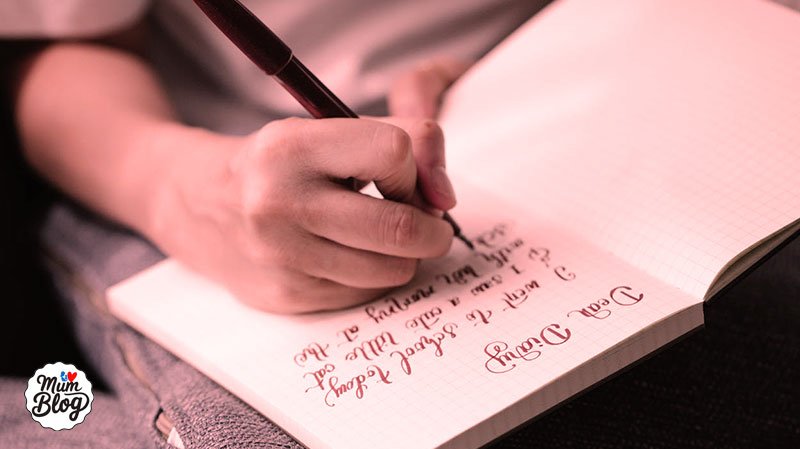 Dear Diary
I went to school today
I saw a cute little cat
with her mommy at the
Mum
Blog